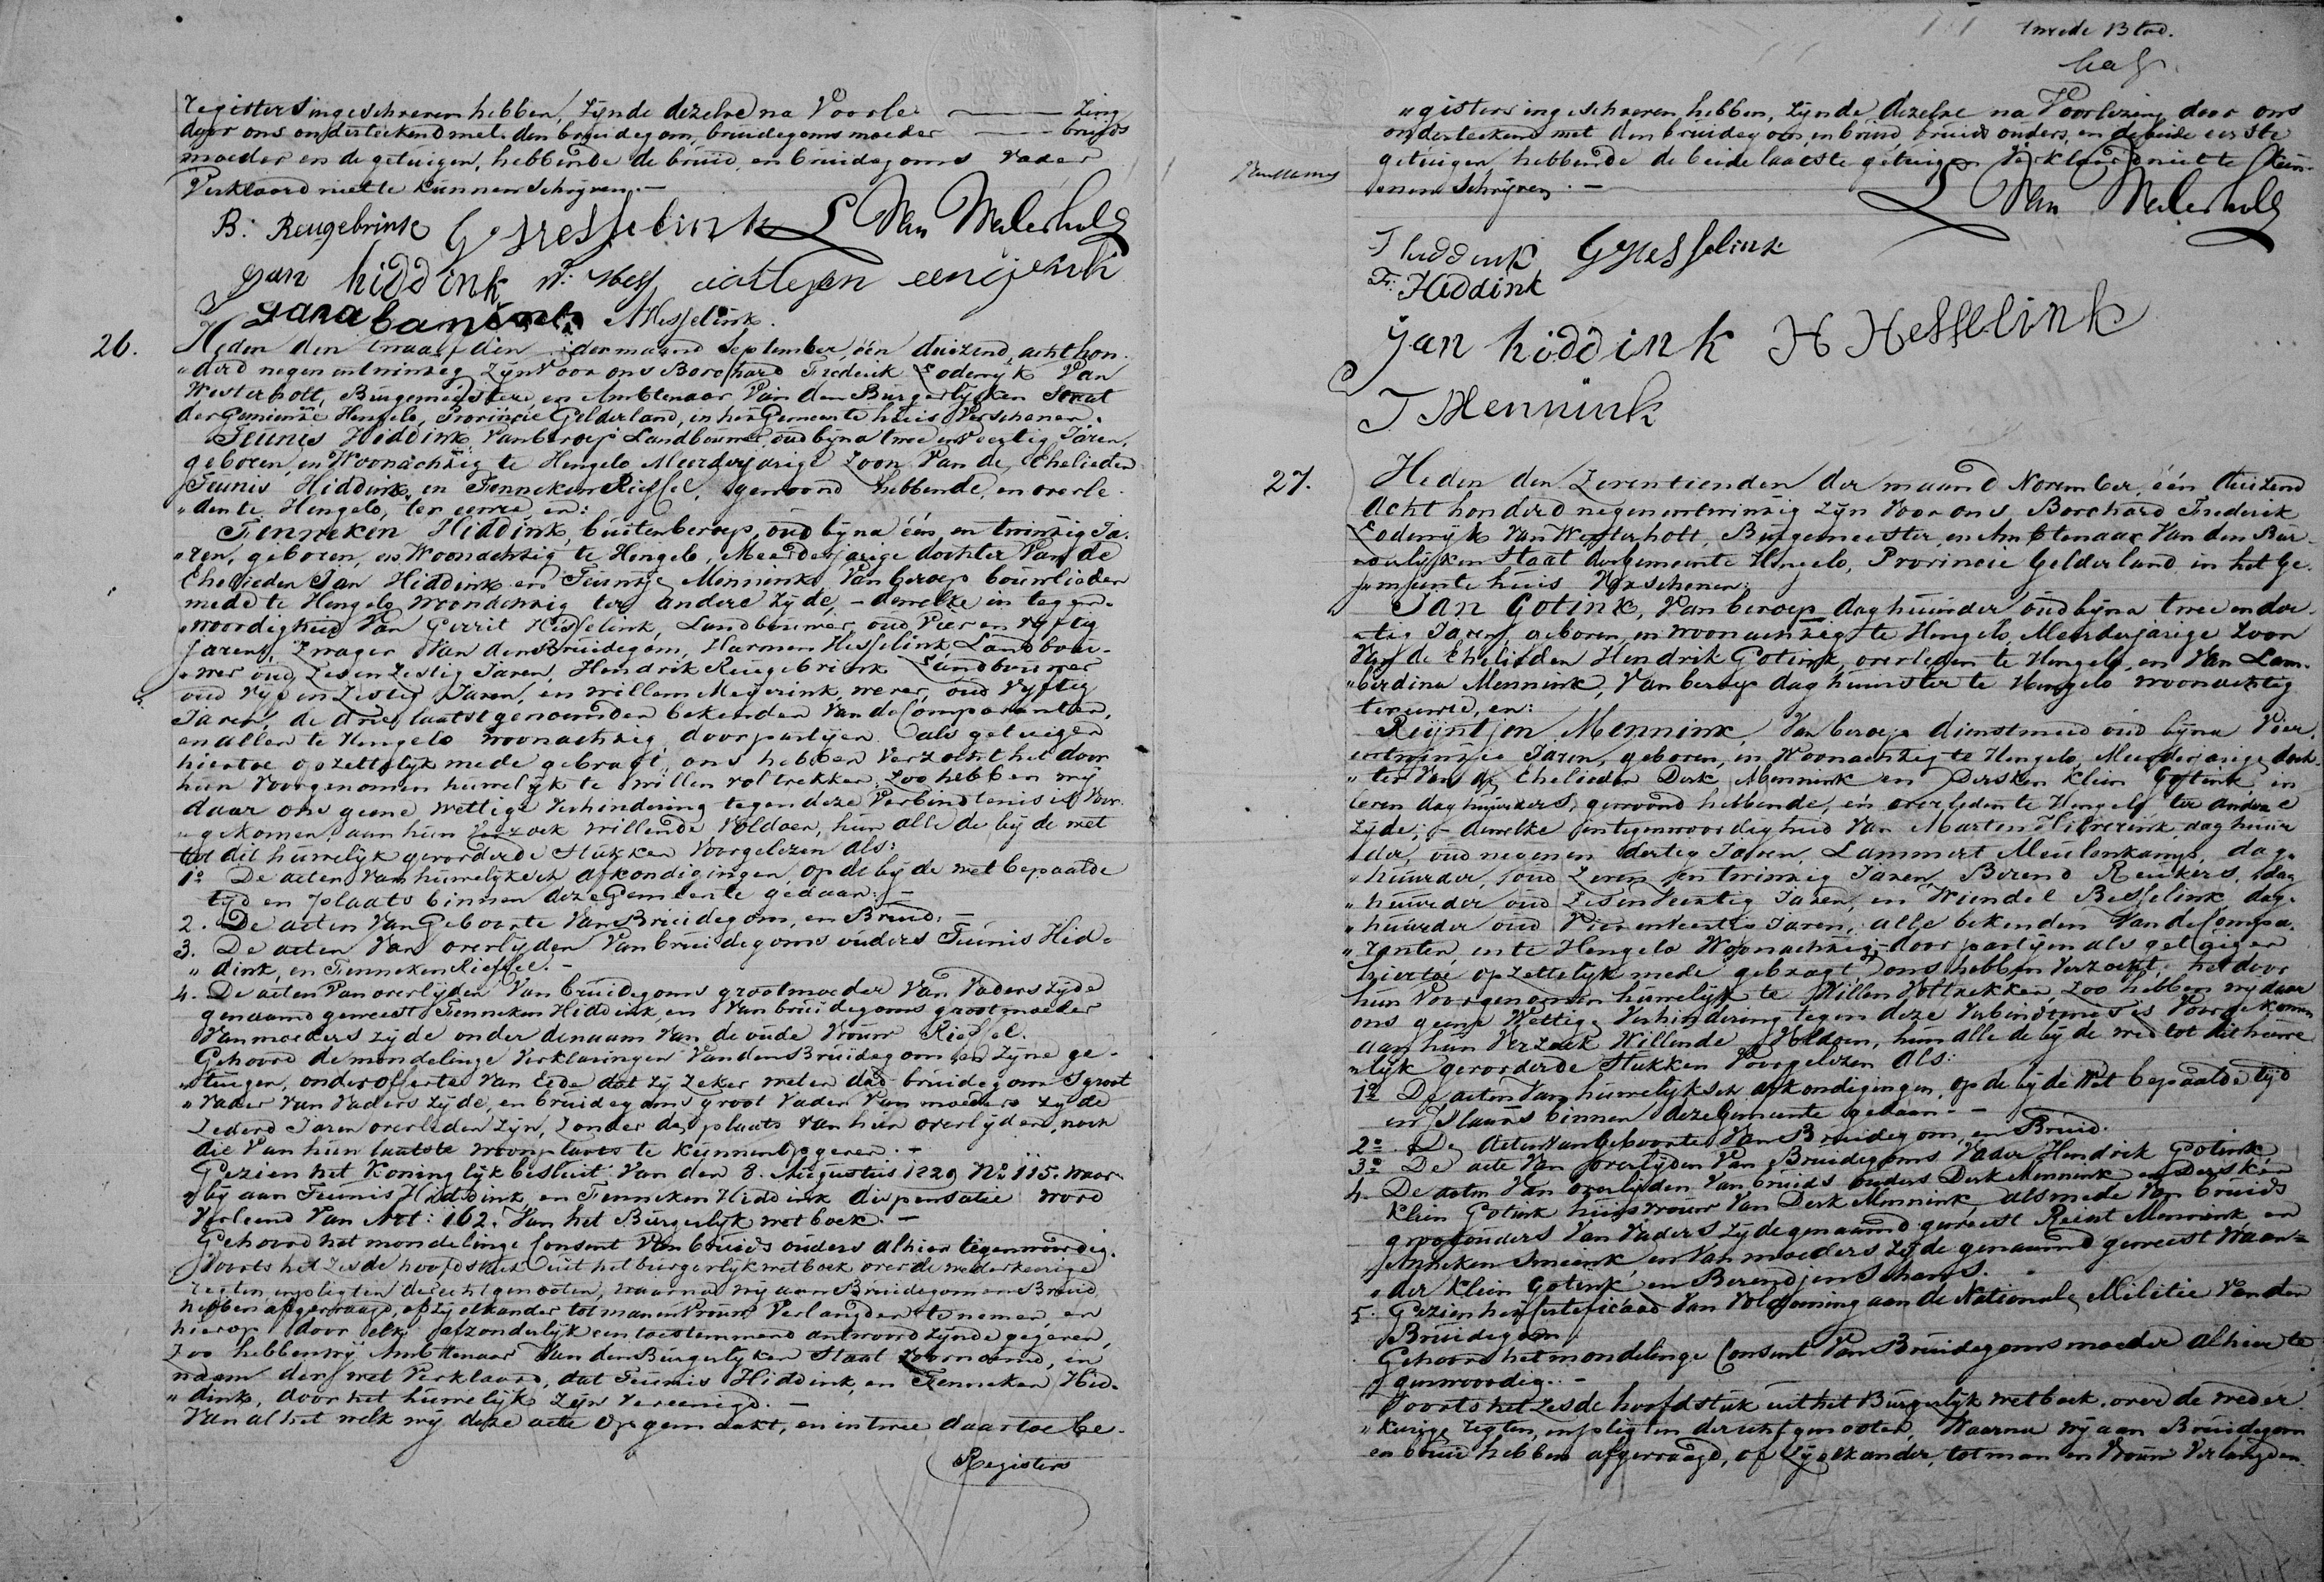 registers ingeschreven hebben, zijnde dezelve na Voorle- zing
door ons onderteekend met den bruidegom, bruidegoms moeder bruids
moeder en de getuigen, hebbende de bruid en bruidegoms vader
Verklaard niet te kunnen schrijven.—
B. Reugebrink G Hesselink L Van Westerholt
Jan hiddink W. eengerink
Hesselink.
26.
Heden den twaalfden der maand September, één duizend, acht hon-
"derd negen en twintig Zijn Voor ons Borchard Frederik Lodewijk Van
Westerholt, Burgemeester, en Ambtenaar Van den Burgerlijken Staat
der Gemeente Hengelo, Provincie Gelderland, in het Gemeente huis Verschenen:
Teunis Hiddink, Van beroep Landbouwer, oud bijna twee en Veertig Jaren,
geboren, en Woonachtig te Hengelo, Meerderjarige Zoon Van de Ehelieden
Teunis Hiddink, en Fenneken Riessel, gewoond hebbende, en overle-
"den te Hengelo, ter eenre en:
Fenneken Hiddink, buiten beroep, oud bijna één en twintig Ja-
"ren, geboren, en Woonachtig te Hengelo, Meerderjarige dochter Van de
Ehelieden Jan Hiddink en Teuntje Mennink, Van beroep bouwlieden
mede te Hengelo woonachtig ter andere zijde, – dewelke in tegen-
"woordigheid Van Gerrit Hesselink, Landbouwer, oud Vier en Vijftig
jaren, Zwager Van den Bruidegom, Harmen Hesselink, Landbou-
"wer oud Zes en Zestig Jaren, Hendrik Reugebrink Landbouwer
oud Vijf en Zestig Jaren, en Willem Meijerink, wever, oud Vijftig
Jaren, de drie laatstgenoemden bekenden Van de Comparanten,
en allen te Hengelo woonachtig, door partijen als getuigen
hiertoe opzettelijk mede gebragt, ons hebben Verzocht het door
hun Voorgenomen huwelijk te willen voltrekken, Zoo hebben wij
daar ons geene wettige Verhindering tegen deze Verbindtenis is Voor-
"gekomen, aan hun Verzoek willende Voldoen, hun alle de bij de wet
tot dit huwelijk gevorderde Stukken Voorgelezen als:
1o De acten Van huwelijksche afkondigingen, op de bij de wet bepaalde
tijd en plaats binnen deze Gemeente gedaan: –
2. De acten Van Geboorte Van Bruidegom, en Bruid: –
3. De acten Van overlijden Van bruidegoms ouders Teunis Hid-
"dink, en Fenneken Riessel. –
4. De acten Van overlijden Van bruidegoms grootmoeder Van Vaders zijde
genaamd geweest Fenneken Hiddink, en Van bruidegoms grootmoeder
Van moeders zijde onder de naam Van de oude Vrouw Riessel.
Gehoord de mondelinge Verklaringen Van den Bruidegom en Zijne ge-
"tuigen, onder offerte Van Eede dat zij zeker weten dat bruidegoms groot
"vader Van Vaders zijde, en bruidegoms groot Vader Van moeders zijde
Zedert Jaren overleden zijn, zonder de plaats van hun overlijden, noch
die Van hun laatste woonplaats te kunnen opgeven. –
Gezien het Koninglijk besluit Van den 8. Augustus 1829 No. 115. waar-
"bij aan Teunis Hiddink, en Fenneken Hiddink dispensatie word
Verleend Van Art: 162. Van het Burgerlijk wetboek. –
Gehoord het mondelinge Consent Van bruids ouders alhier tegenwoordig.
Voorts het zesde hoofdstuk uit het burgerlijk wetboek over de wederkeerige
regten, en pligten der echtgenooten, waarna wij aan Bruidegom en Bruid
hebben afgevraagd, of zij elkander tot man en Vrouw Verlangden te nemen, en
hierop door elk afzonderlijk een toestemmend antwoord zijnde gegeven,
Zoo hebben wij Ambtenaar Van den Burgerlijken Staat Voornoemd, in
naam der wet Verklaard, dat Teunis Hiddink, en Fenneken Hid-
"dink, door het huwelijk Zijn Vereenigd. –
Van al het welk wij deze acte opgemaakt, en in twee daartoe be-
Registers
twede Blad.
"gisters ingeschreven hebben, zijnde dezelve na Voorlezing door ons
onderteekend met den bruidegom, en bruid, bruids ouders, en de beide eerste
getuigen hebbende de beide laatste getuigen Verklaard niet te kun-
"nen schrijven. –
L Van Westerholt
T hiddink G Hesselink
F: Hiddink
Jan hiddink H Hesselink
T Mennink
27.
Heden den Zeventienden der maand November, één duizend
acht honderd negen en twintig Zijn Voor ons Borchard Frederik
Lodewijk Van Westerholt, Burgemeester, en Ambtenaar Van den Bur-
"gerlijken Staat der Gemeente Hengelo, Provincie Gelderland in het Ge-
"meente huis Verschenen:
Jan Gotink, Van beroep daghuurder oud bijna twee en der-
"tig Jaren, geboren, en woonachtig te Hengelo, Meerderjarige Zoon
Van de Ehelieden Hendrik Gotink, overleden te Hengelo, en Van Lam-
"berdina Mennink, Van beroep daghuurster te Hengelo woonachtig
ter eenre, en:
Reijntjen Mennink, Van beroep dienstmeid oud bijna Vier
entwintig Jaren, geboren, en Woonachtig te Hengelo, Meerderjarige doch-
"ter Van de Ehelieden Derk Mennink en Dersken Klein Gotink, in
leven daghuurders, gewoond hebbende, en overleden te Hengelo ter andere
zijde; – dewelke in tegenwoordigheid Van Marten Hilverink, daghuur
"der, oud negen en dertig Jaren, Lammert Meulenkamp, dag-
"huurder, oud Zeven en twintig Jaren, Berend Reukers, dag
"huurder oud Zes en Veertig Jaren, en Wiendel Besselink, dag-
"huurder oud Vier en Veertig Jaren, alle bekenden Van de Compa-
"ranten, en te Hengelo Woonachtig, door partijen als getuigen
hiertoe opzettelijk mede gebragt, ons hebben Verzocht, het door
hun Voorgenomen huwelijk te Willen Voltrekken, Zoo hebben wij daar
ons geene Wettige Verhindering tegen deze Verbindtenis is Voorgekomen
aan hun Verzoek Willende Voldoen, hun alle de bij de wet tot dit huwe
"lijk gevorderde Stukken Voorgelezen als:
1o De acten Van huwelijksche afkondigingen, op de bij de Wet bepaalde tijd
en plaats binnen deze Gemeente gedaan. –
2o. De Acten Van Geboorte Van Bruidegom, en Bruid.
3o De acte Van overlijden Van Bruidegoms Vader Hendrik Gotink
4. De acten Van overlijden Van bruids ouders Derk Mennink en Dersken
Klein Gotink huisvrouw Van Derk Mennink, alsmede Van bruids
grootouders Van Vaders zijde genaamd geweest Reint Mennink en
Anneken Smeenk, en Van moeders zijde genaamd geweest Waan-
"der Klein Gotink, en Berendjen Schans.
5. Gezien het Certificaad Van Voldoening aan de Nationale Militie Van den
Bruidegom.
Gehoord het mondelinge Consent Van Bruidegoms moeder alhier te
"genwoordig. –
Voorts het zesde hoofdstuk uit het Burgerlijk wetboek, over de weder
"keerige regten, en pligten der echtgenooten, Waarna wij aan Bruidegom
en bruid hebben afgevraagd, of Zij elkander, tot man en Vrouw Verlangden